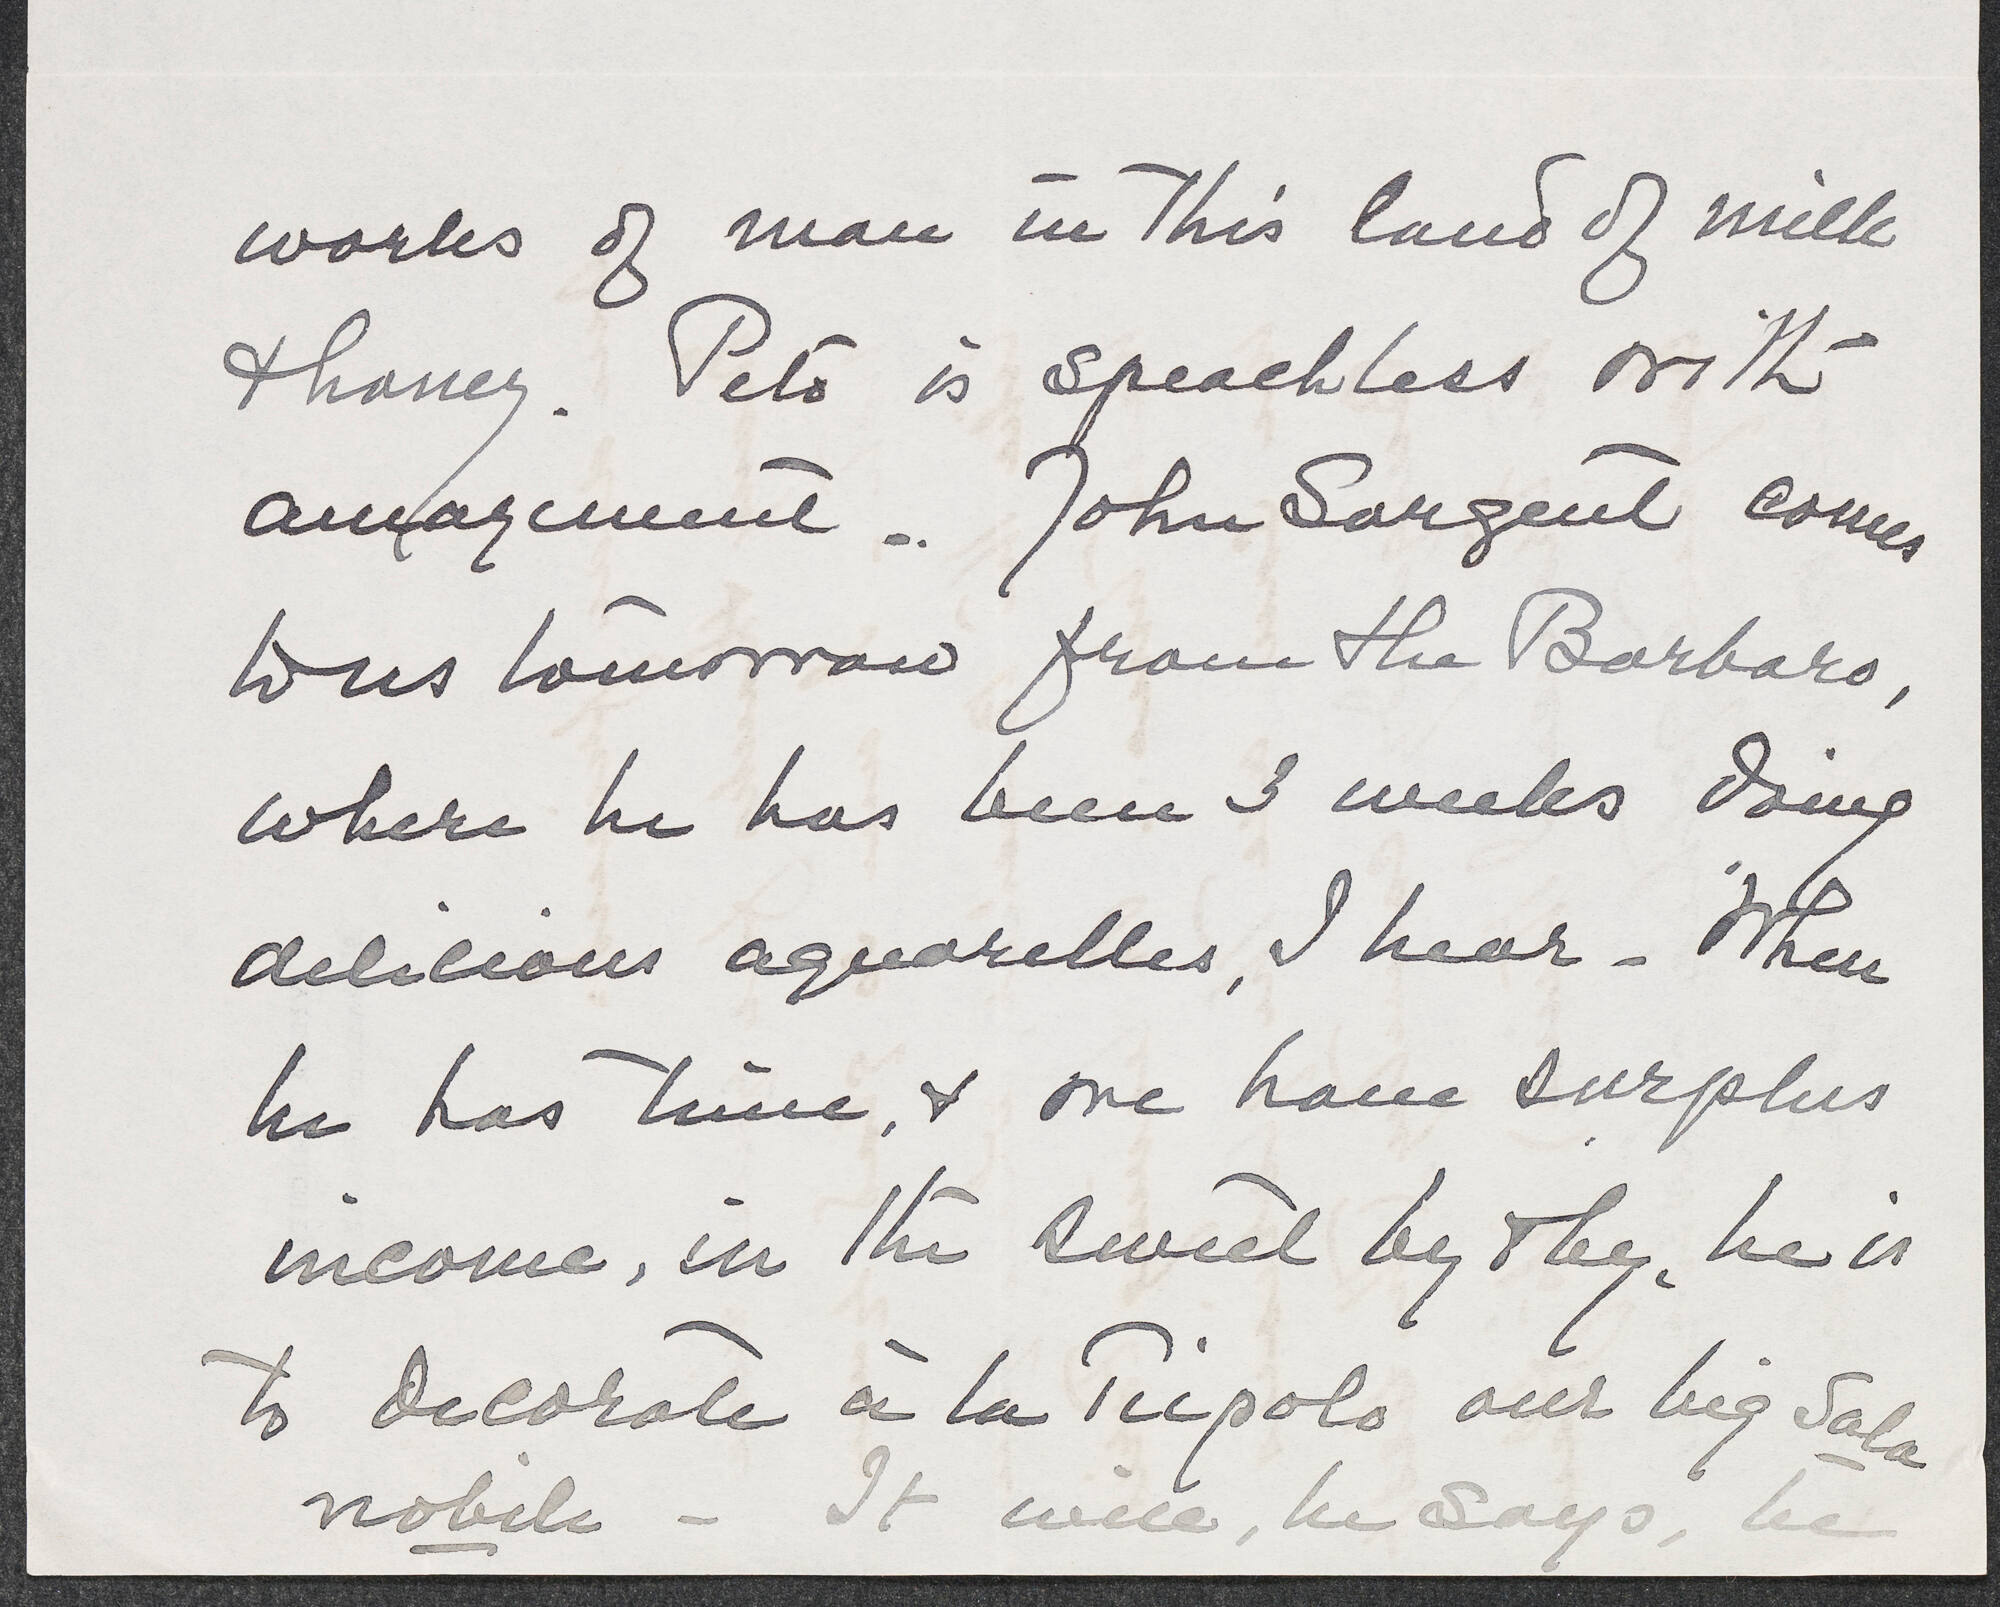 works of man in this land of milk
& honey. Peto is speachless with
amazement -. John Sargent comes
to us tomorrow from the Barbaro,
where he has been 3 weeks doing
delicious aquarelles, I hear - When
he has time, & we have surplus
income, in the sweet by & by, he is
to decorate à la Tiepolo our big Sala
nobile - It will, he says, be